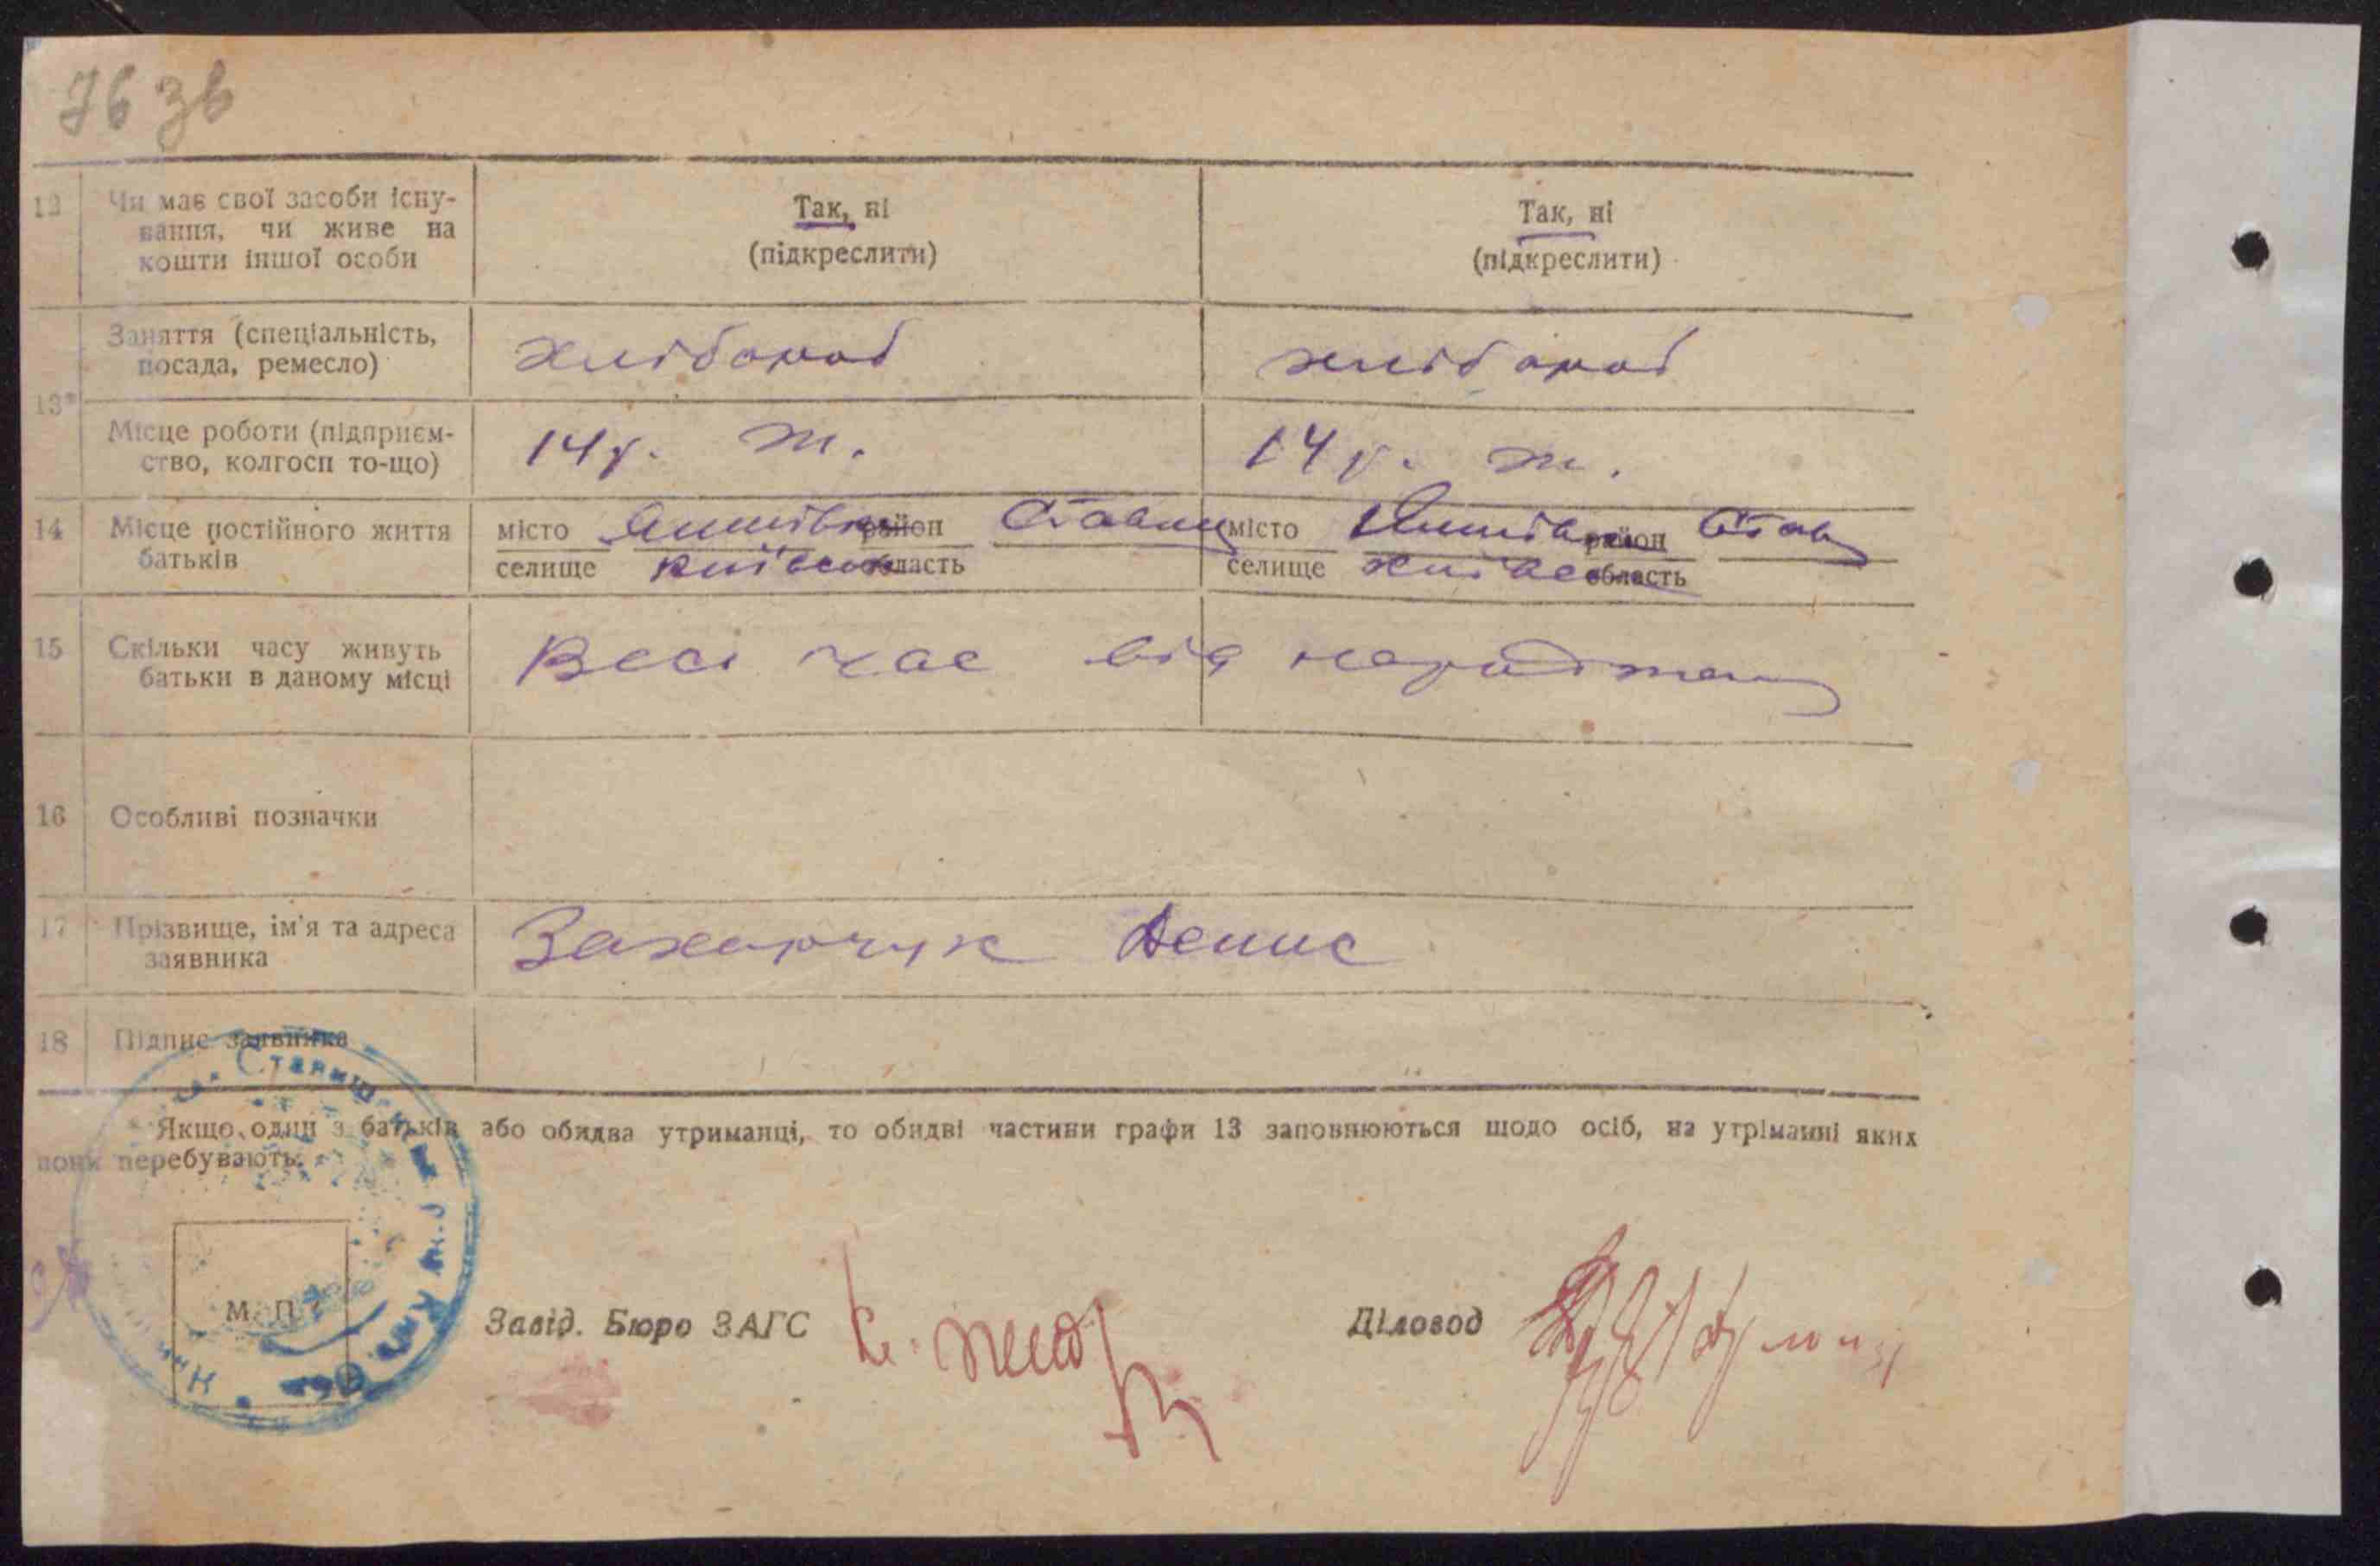 76 зв
12 Чи має свої засоби існу-
вання, чи живе на
кошти іншої особи
Так, ні
(підкреслити)
Так, ні
(підкреслити)
13*
Заняття (спеціальність,
посада, ремесло)
хлібороб
хлібороб
Місце роботи (підприєм-
ство, колгосп то-що)
14 р. м.
14 р. м.
14 Місце постійного життя
батьків
місто район
селище область
місто район Став
селище область
15 Скільки часу живуть
батьки в даному місці
Весь час від народження
16 Особливі позначки
17 Прізвище, ім'я та адреса
заявника
Захарчук Денис
18 Підпис заявника
Якщо один з батьків або обидва утриманці, то обидві частини графи 13 заповнюються щодо осіб, на утріманні яких
вони перебувають.
М. П.
Завід. Бюро ЗАГС
Діловод